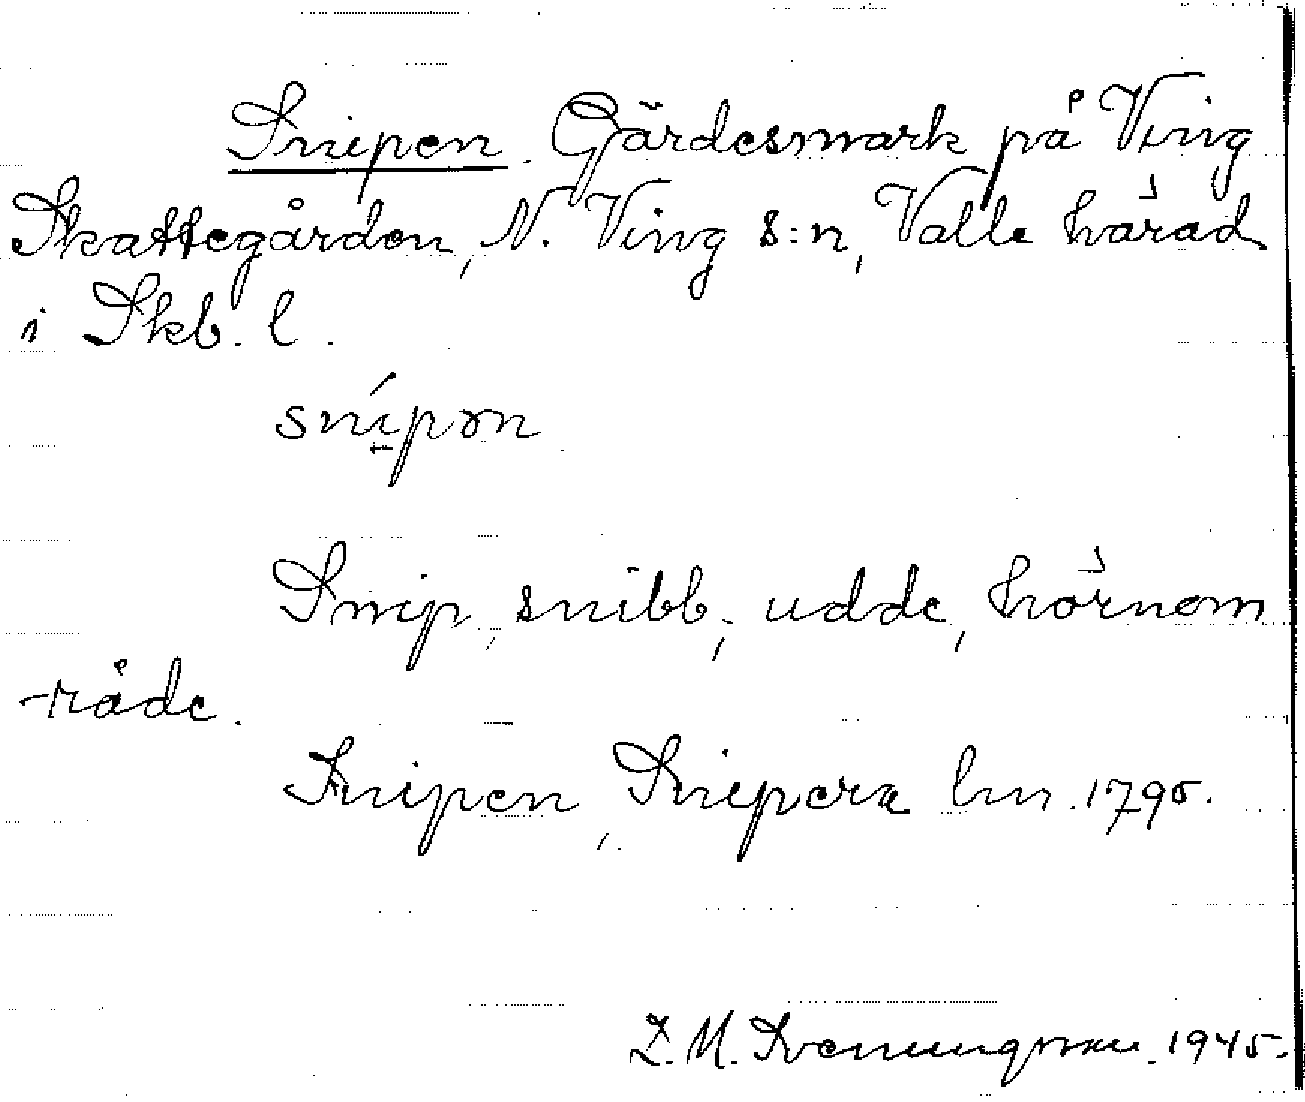 Snipen. Gärdesmark på Ving
Skattegården, N. Ving s:n, Valle härad
i Skb. l.
snípən
Snip, snibb, udde, hörnom
-råde.
Snipen, Snipera lm. 1795.
Z. M. Svenungsson. 1945.